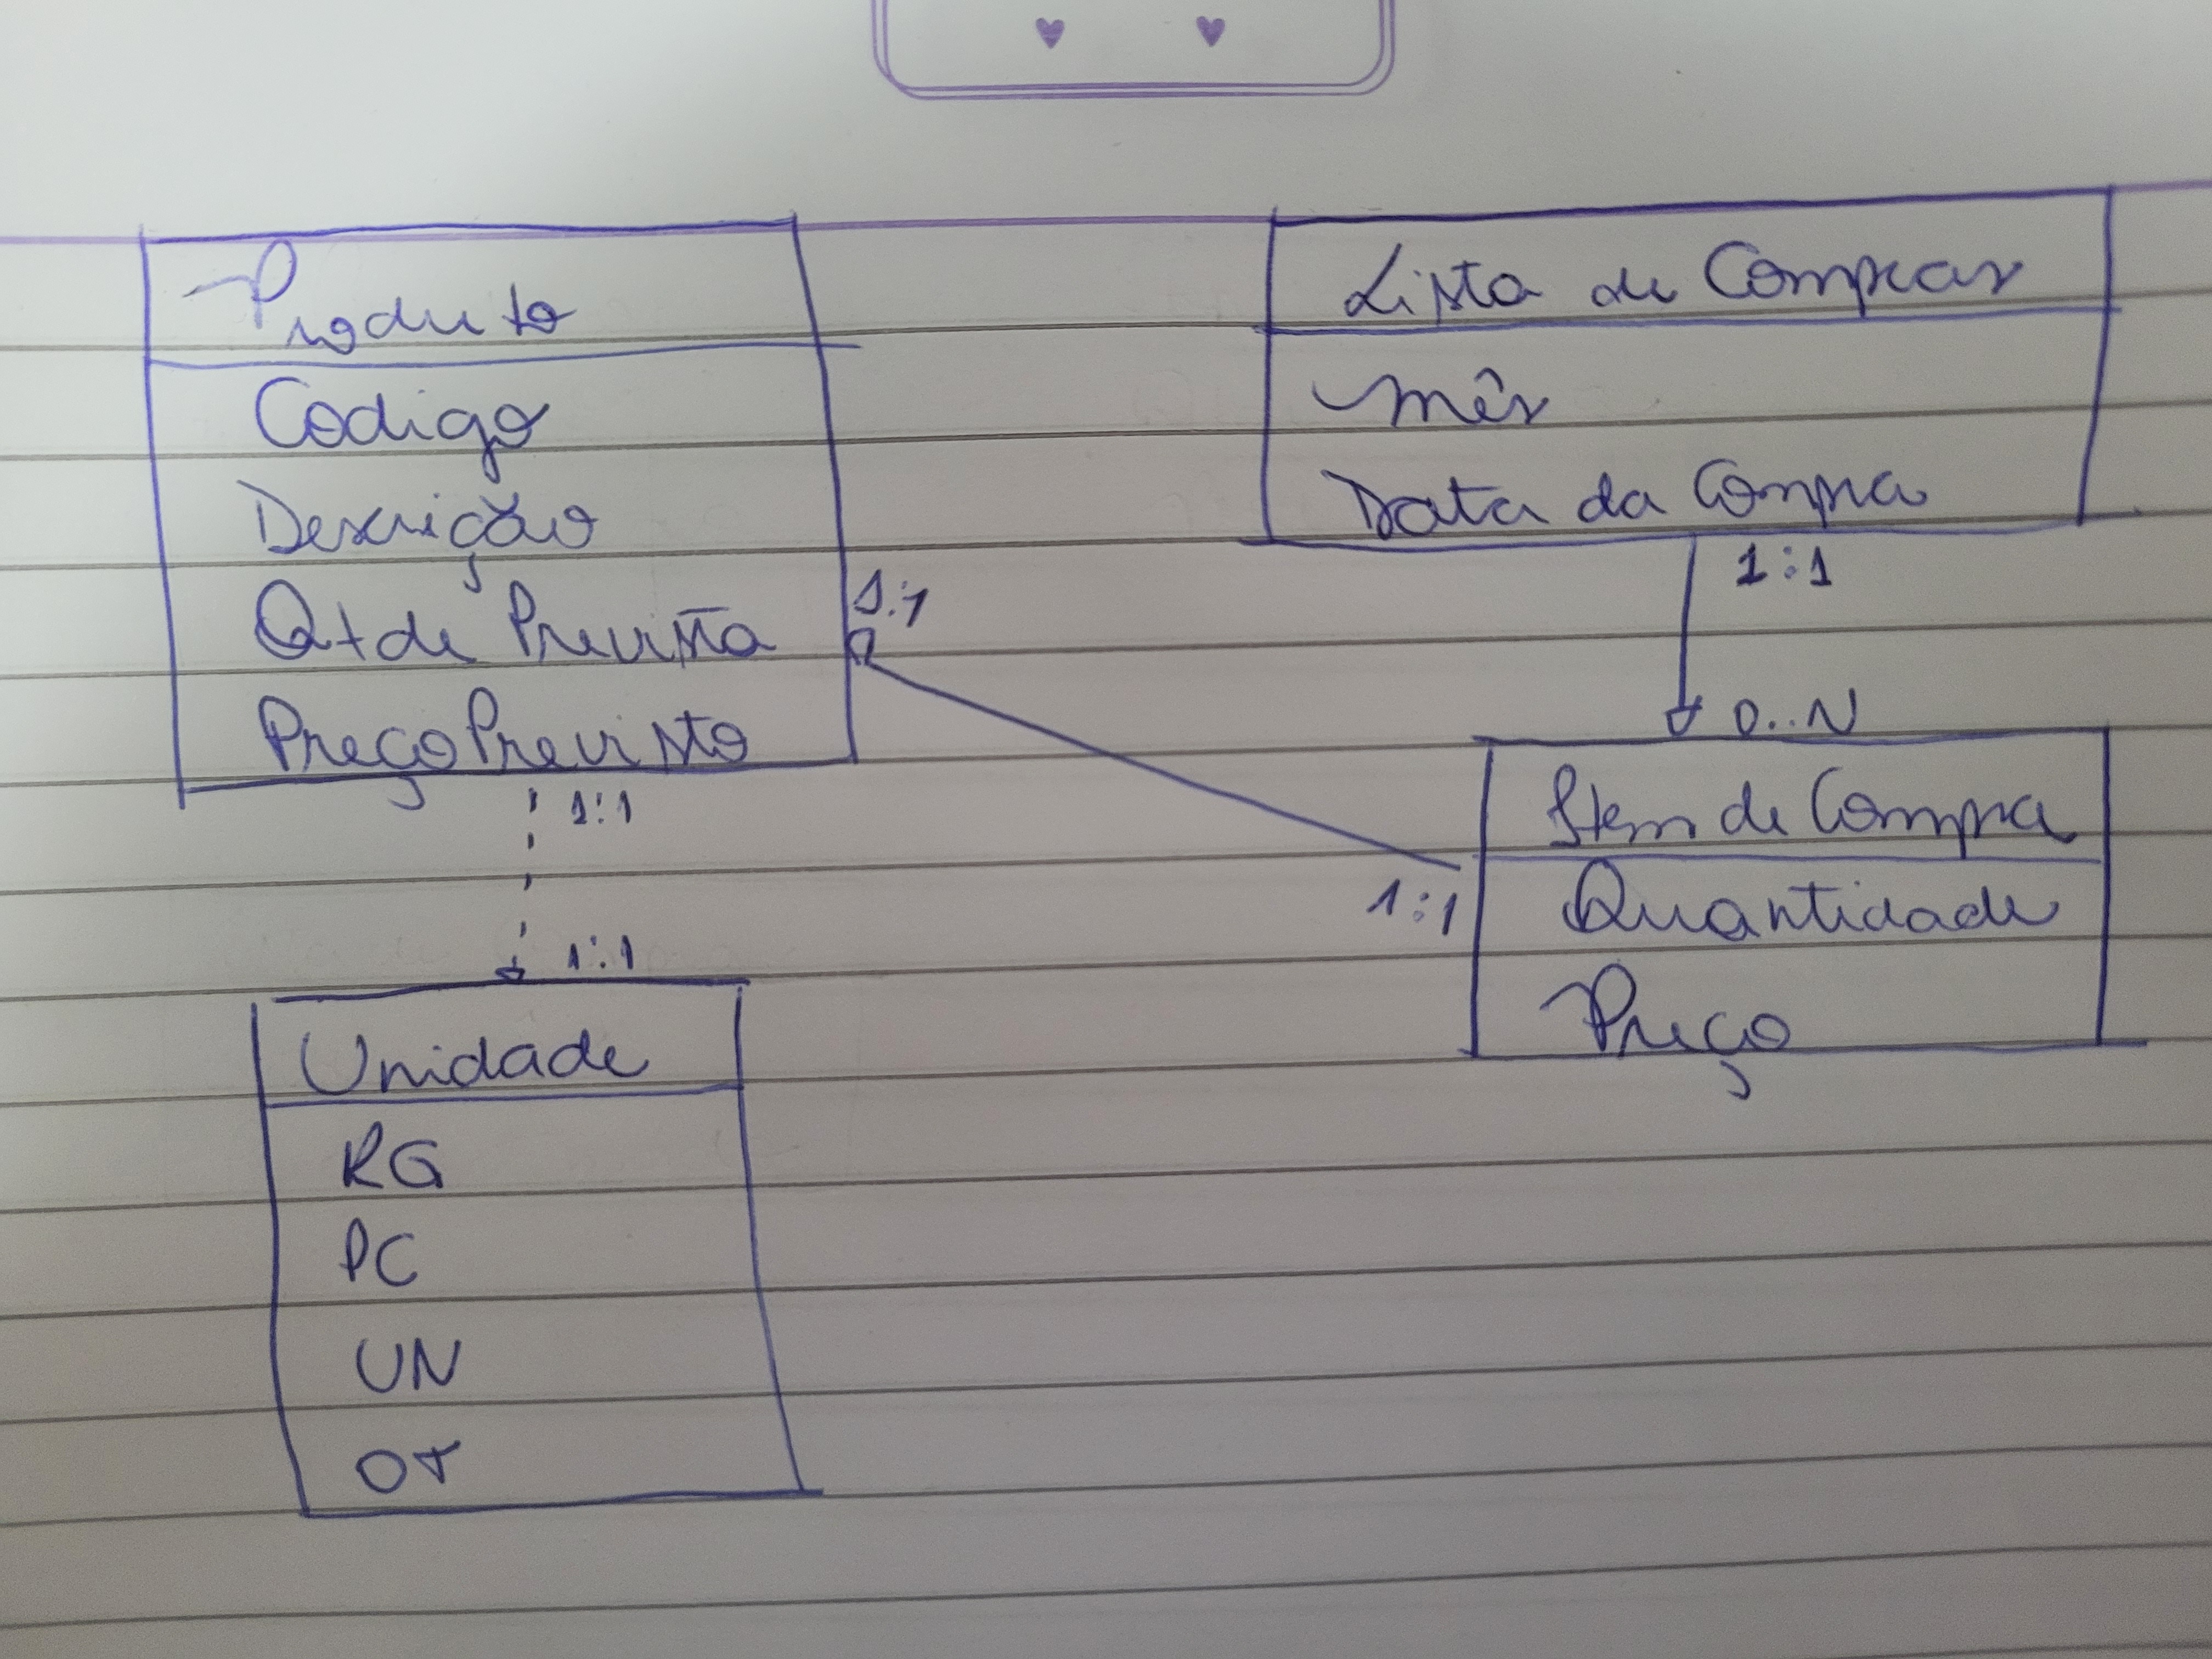 Produto
Codigo
Descrição
Qtde Prevista
Preço Previsto
1:1
1:1
1:1
Unidade
KG
PC
UN
Lista de Compras
Mês
Data da Compra
1:1
0..N
Item de Compra
1:1
Quantidade
Preço